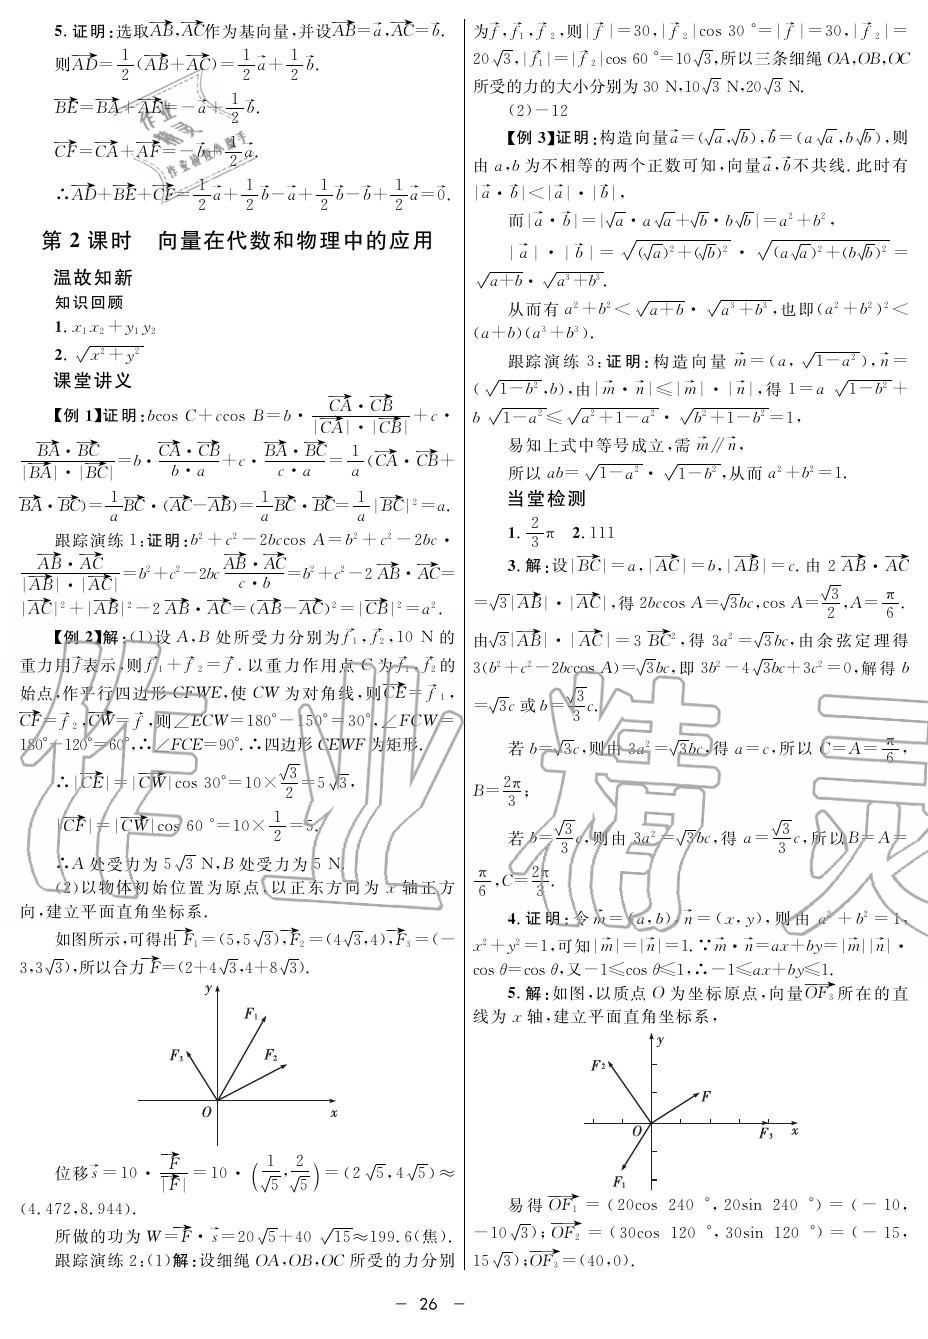 5.证明:选取AB,AC作为基向量,并设AB=a,AC=b.
则AD=1/2(AB+AC)=1/2a+1/2b.
BE=BA+AE=-a+1/2b.
CF=CA+AF=-b+1/2a.
∴AD+BE+CF=1/2a+1/2b-a+1/2b-b+1/2a=0.
第2课时 向量在代数和物理中的应用
温故知新
知识回顾
1. x₁x₂+y₁y₂
2. √(x²+y²)
课堂讲义
【例1】证明:bcos C+ccos B=b·(CA·CB)/(|CA|·|CB|)+c·
(BA·BC)/(|BA|·|BC|)=b·(CA·CB)/(b·a)+c·(BA·BC)/(c·a)=1/a(CA·CB+
BA·BC)=1/aBC·(AC-AB)=1/aBC·BC=1/a|BC|²=a.
跟踪演练1:证明:b²+c²-2bccos A=b²+c²-2bc·
(AB·AC)/(|AB|·|AC|)=b²+c²-2bc(AB·AC)/(c·b)=b²+c²-2AB·AC=
|AC|²+|AB|²-2AB·AC=(AB-AC)²=|CB|²=a².
【例2】解:(1)设A,B处所受力分别为f₁,f₂,10 N的
重力用f表示,则f₁+f₂=f.以重力作用点C为f₁,f₂的
始点,作平行四边形CFWE,使CW为对角线,则CE=f₁,
CF=f₂,CW=f,则∠ECW=180°-150°=30°,∠FCW=
180°-120°=60°,∴∠FCE=90°.∴四边形CEWF为矩形.
∴|CE|=|CW|cos 30°=10×√3/2=5√3,
|CF|=|CW|cos 60°=10×1/2=5.
∴A处受力为5√3 N,B处受力为5 N.
(2)以物体初始位置为原点,以正东方向为x轴正方
向,建立平面直角坐标系.
如图所示,可得出F₁=(5,5√3),F₂=(4√3,4),F₃=(-
3,3√3),所以合力F=(2+4√3,4+8√3).
y
F₁
F₃
F₂
O
x
位移s=10·F/|F|=10·(1/√5,2/√5)=(2√5,4√5)≈
(4.472,8.944).
所做的功为W=F·s=20√5+40√15≈199.6(焦).
跟踪演练2:(1)解:设细绳OA,OB,OC所受的力分别
为f,f₁,f₂,则|f|=30,|f₂|cos 30°=|f|=30,|f₂|=
20√3,|f₁|=|f₂|cos 60°=10√3,所以三条细绳OA,OB,OC
所受的力的大小分别为30 N,10√3 N,20√3 N.
(2)-12
【例3】证明:构造向量a=(√a,√b),b=(a√a,b√b),则
由a,b为不相等的两个正数可知,向量a,b不共线.此时有
|a·b|<|a|·|b|,
而|a·b|=|√a·a√a+√b·b√b|=a²+b²,
|a|·|b|=√((√a)²+(√b)²)·√((a√a)²+(b√b)²)=
√(a+b)·√(a³+b³).
从而有a²+b²<√(a+b)·√(a³+b³),也即(a²+b²)²<
(a+b)(a³+b³).
跟踪演练3:证明:构造向量m=(a,√(1-a²)),n=
(√(1-b²),b),由|m·n|≤|m|·|n|,得1=a√(1-b²)+
b√(1-a²)≤√(a²+1-a²)·√(b²+1-b²)=1,
易知上式中等号成立,需m∥n,
所以ab=√(1-a²)·√(1-b²),从而a²+b²=1.
当堂检测
1. 2/3π 2. 111
3.解:设|BC|=a,|AC|=b,|AB|=c.由2AB·AC
=√3|AB|·|AC|,得2bccos A=√3bc,cos A=√3/2,A=π/6.
由√3|AB|·|AC|=3BC²,得3a²=√3bc,由余弦定理得
3(b²+c²-2bccos A)=√3bc,即3b²-4√3bc+3c²=0,解得b
=√3c或b=√3/3c.
若b=√3c,则由3a²=√3bc,得a=c,所以C=A=π/6,
B=2π/3;
若b=√3/3c,则由3a²=√3bc,得a=√3/3c,所以B=A=
π/6,C=2π/3.
4.证明:令m=(a,b),n=(x,y),则由a²+b²=1,
x²+y²=1,可知|m|=|n|=1.∵m·n=ax+by=|m||n|·
cos θ=cos θ,又-1≤cos θ≤1,∴-1≤ax+by≤1.
5.解:如图,以质点O为坐标原点,向量OF₃所在的直
线为x轴,建立平面直角坐标系,
y
F₂
F
O
F₃
x
F₁
易得OF₁=(20cos 240°,20sin 240°)=(-10,
-10√3);OF₂=(30cos 120°,30sin 120°)=(-15,
15√3);OF₃=(40,0).
- 26 -
作业精灵